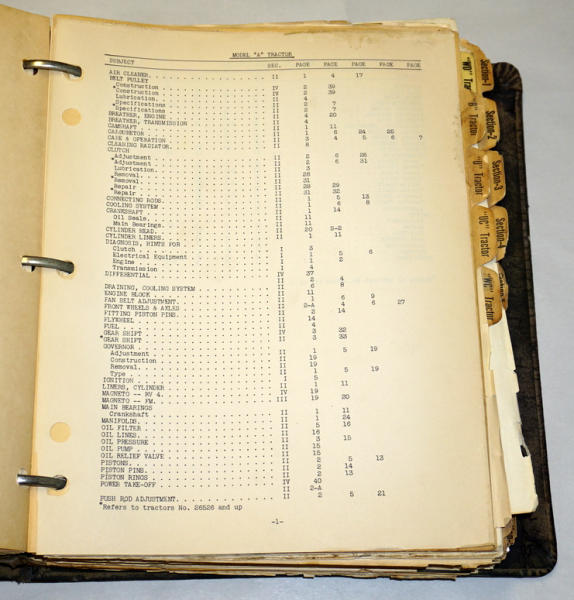 MODEL "A" TRACTOR
SUBJECT SEC. PAGE PAGE PAGE PAGE PAGE
AIR CLEANER. II 1 4 17
BELT PULLEY
*Construction IV 2 39
Construction IV 2 39
Lubrication. II 4
*Specifications II 2 7
Specifications II 2 7
BREATHER, ENGINE II 4 20
BREATHER, TRANSMISSION II 4
CAMSHAFT II 1 11
CARBURETOR II 1 6 24 25
CARE & OPERATION II 3 4 5 6 7
CLEANING RADIATOR. II 8
CLUTCH
*Adjustment II 2 6 28
Adjustment II 2 6 31
Lubrication. II 4
*Removal. II 28
Removal. II 31
*Repair II 28 29
Repair II 31 32
CONNECTING RODS. II 1 5 13
COOLING SYSTEM II 1 6 8
CRANKSHAFT II 1 14
Oil Seals. II 11
Main Bearings. II 1
CYLINDER HEAD. II 20 S-2
CYLINDER LINERS. II 1 11
DIAGNOSIS, HINTS FOR
Clutch I 3
Electrical Equipment I 1 5 6
Engine I 1 2
Transmission I 4
DIFFERENTIAL IV 37
II 2 4
DRAINING, COOLING SYSTEM II 6 8
ENGINE BLOCK II 11
FAN BELT ADJUSTMENT. II 1 6 9
FRONT WHEELS & AXLES II 2-A 4 6 27
FITTING PISTON PINS. II 2 14
FLYWHEEL II 14
FUEL II 4
GEAR SHIFT IV 3 32
*GEAR SHIFT II 3 33
GOVERNOR II 1 5 19
Adjustment II 19
Construction II 19
Removal. II 19
Type II 1 5 19
IGNITION I 5
LINERS, CYLINDER II 1 11
MAGNETO -- RV 4. IV 19
MAGNETO -- FM. III 19 20
MAIN BEARINGS
Crankshaft II 1 11
MANIFOLDS. II 1 24
OIL FILTER II 5 16
OIL LINES. II 16
OIL PRESSURE II 3 15
OIL PUMP II 15
OIL RELIEF VALVE II 15
PISTONS. II 2 5 13
PISTON PINS. II 2 14
PISTON RINGS II 2 13
POWER TAKE-OFF IV 40
II 2-A
PUSH ROD ADJUSTMENT. II 2 5 21
*Refers to tractors No. 26526 and up
-1-
Section-1
"WD" Tra
Section-3
Tractor
Section-4
"UC" Tractor
"WC" Tractor